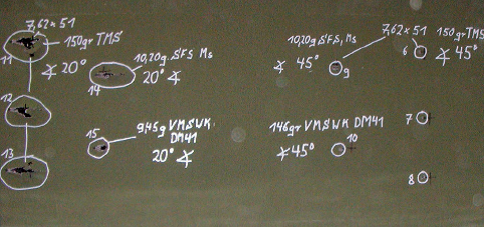 7,62 x 51
150gr TMS
11
∢ 20°
10,20g SFS Ms
20° ∢
14
12
13
15
9,45g VMSWK
DM41
20° ∢
10,20g SFS, Ms
∢ 45°
9
7,62 x 51
150gr TMS
6
∢ 45°
146gr VMSWK DM41
∢ 45°
10
7
8